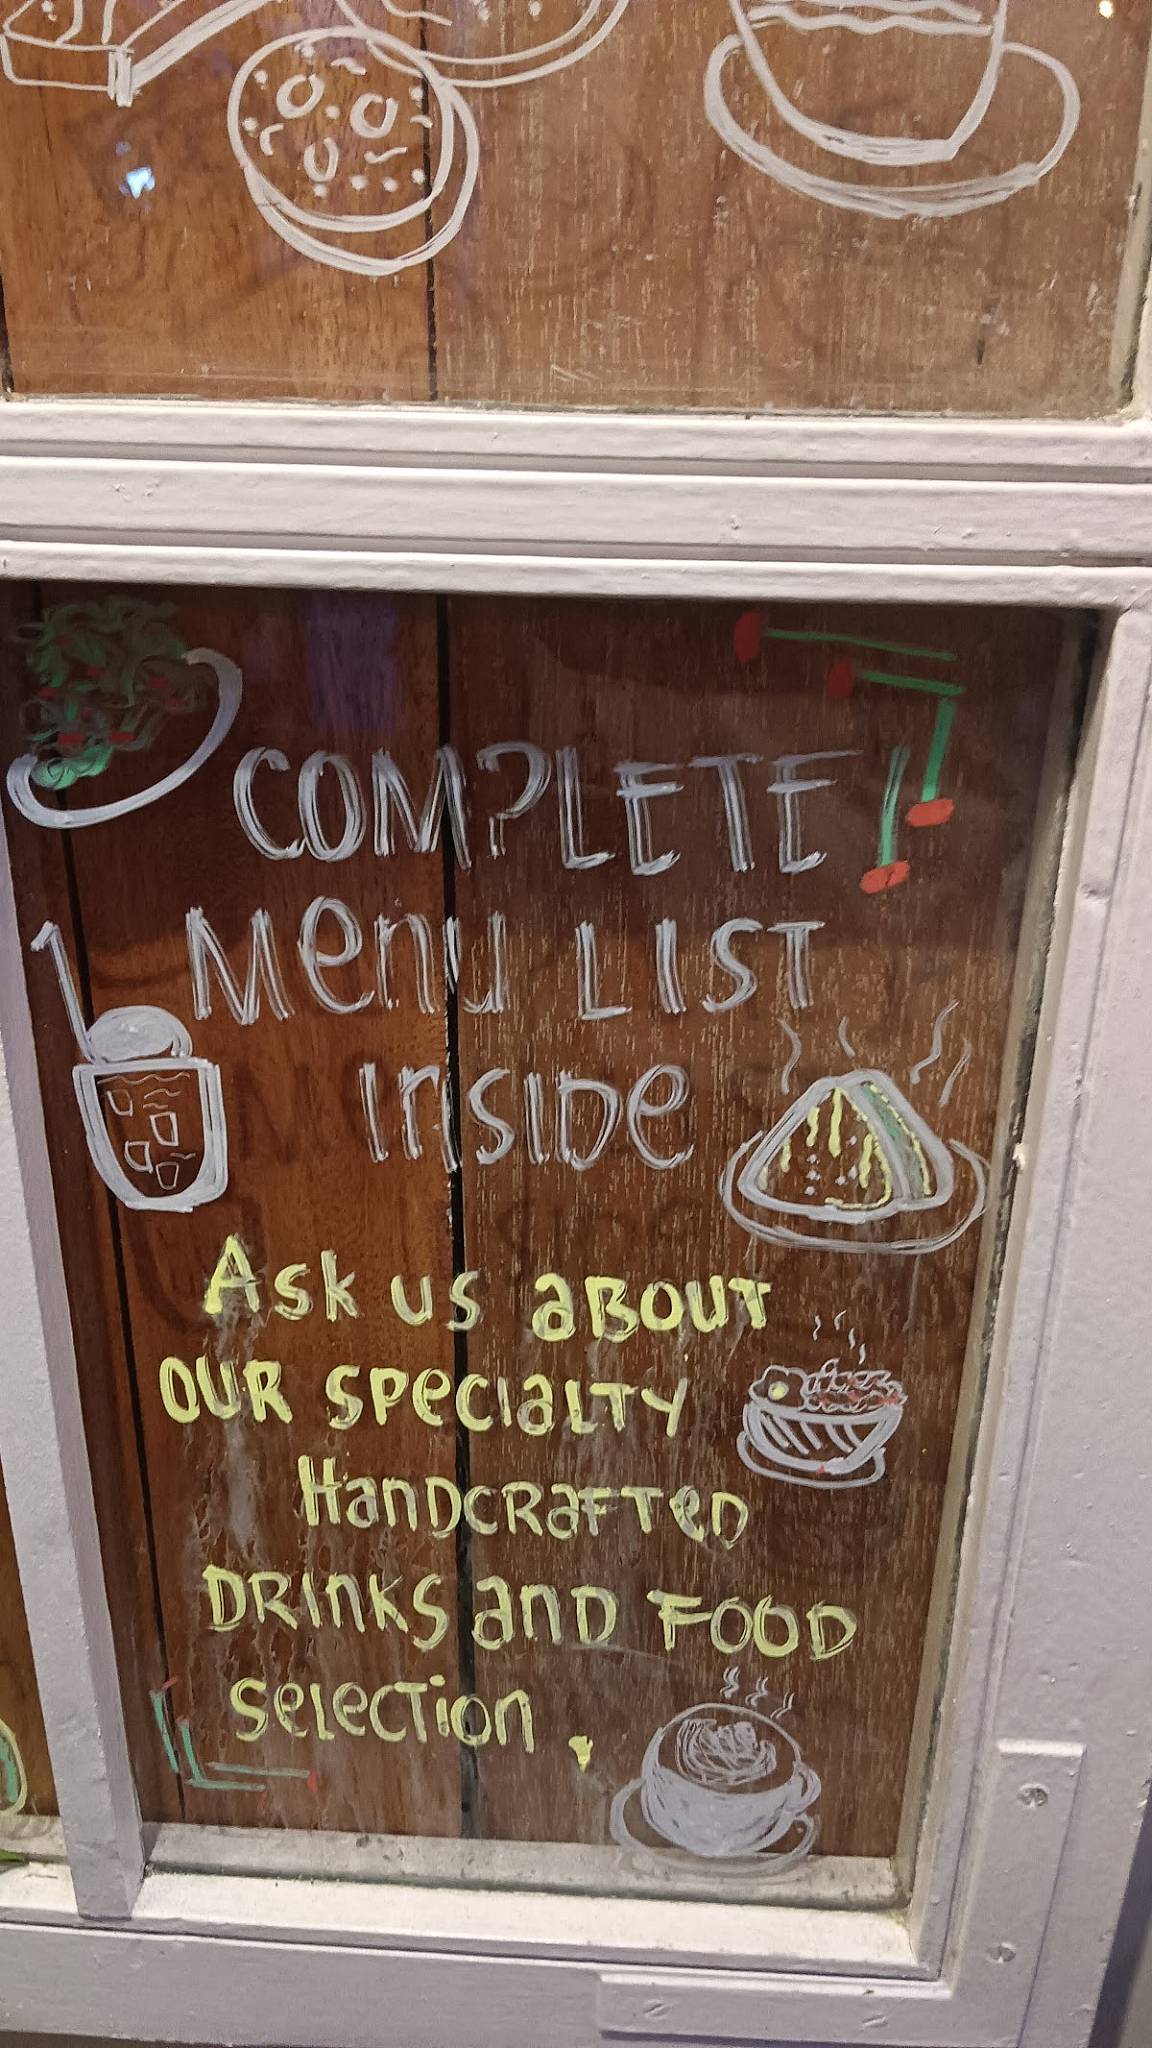 COMPLETE
Menu LIST
InSIDe
Ask us aBOUT
OUR SPecIaLTY
HanDCRaFTeD
DRInKS anD FOOD
SeLecTion.